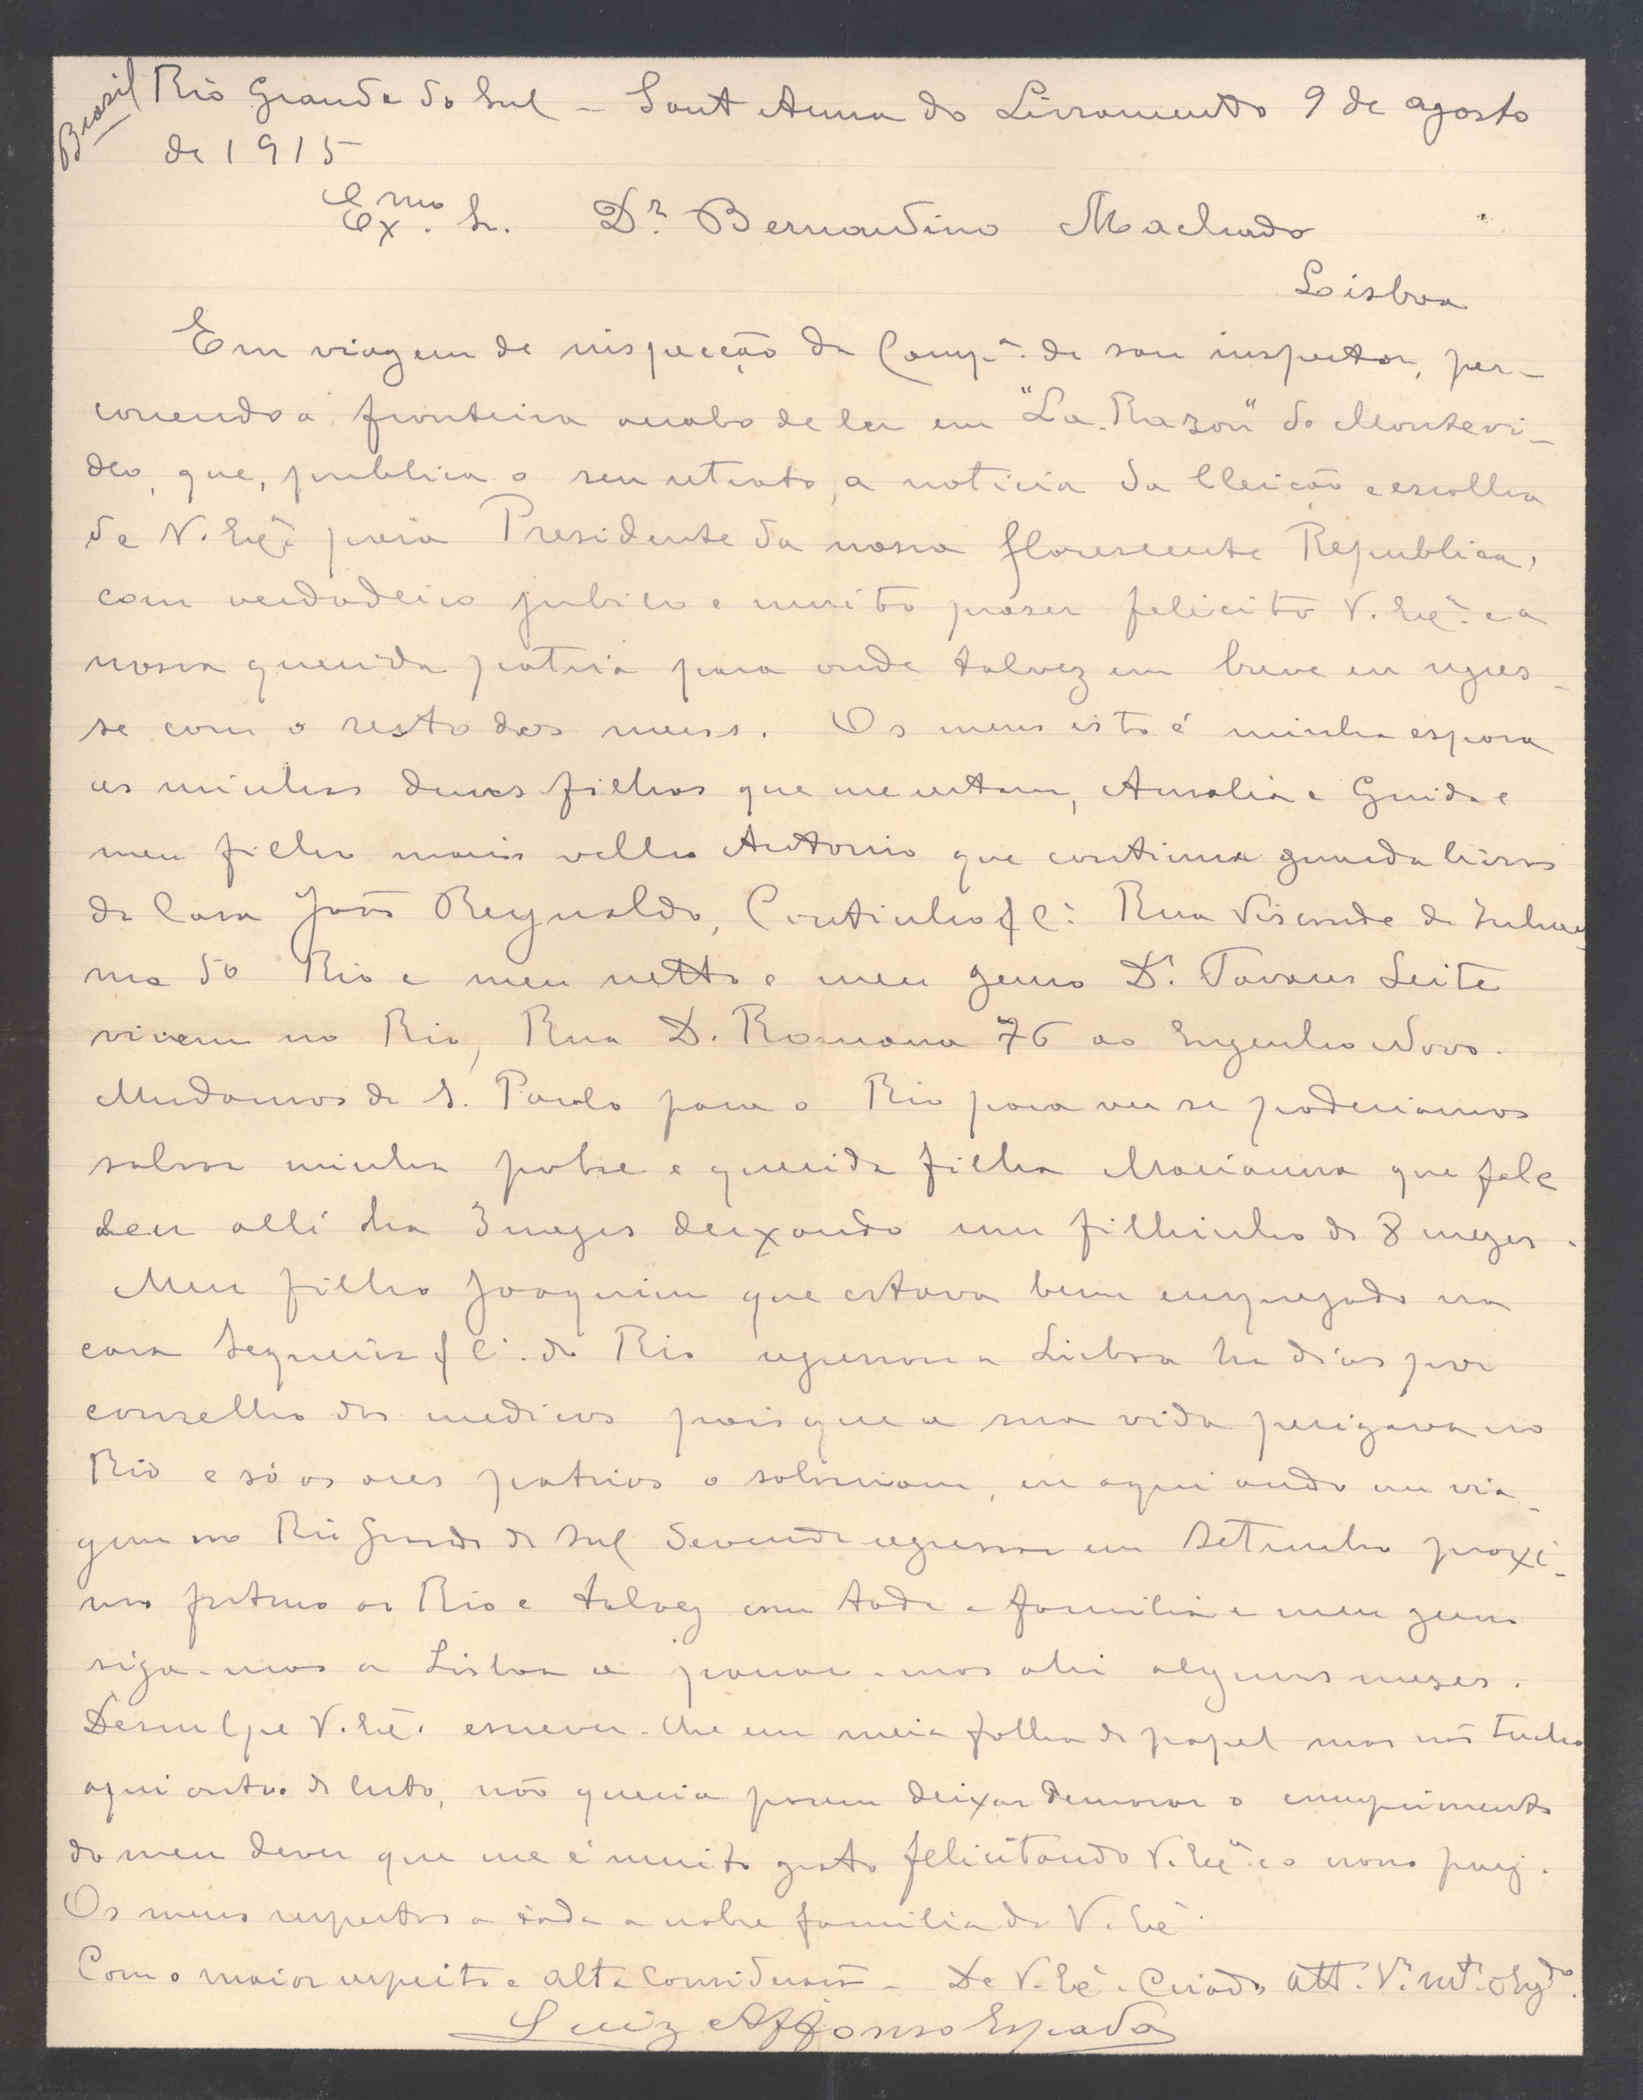 Brasil Rio Grande do Sul - Sant Anna do Livramento 9 de agosto
de 1915
Exmo. Sr. Dr. Bernardino Machado
Lisboa
Em viagem de inspecção da Compª. de sou inspector, per-
correndo a fronteira acabo de ler em "La Razon" de Montevi-
deo, que, publica o seu retrato, a noticia da Eleição e escolha
de V. Exª para Presidente da nossa florescente Republica,
com verdadeiro jubilo e muito praser felicito V. Exª. e a
nossa querida patria para onde talvez em breve eu regres-
se com o resto dos meus. Os meus isto é minha esposa
as minhas duas filhas que me restam, Amalia e Guida e
meu filho mais velho Antonio que continua guarda livros
da Casa João Reynaldo, Coutinho & Cª Rua Visconde de Inhau-
ma do Rio e meu netto e meu genro Dr. Tavares Leite
vivem no Rio, Rua D. Romana 76 ao Engenho Novo.
Mudamos de S. Paulo para o Rio para ver se poderiamos
salvar minha pobre e querida filha Marianna que fale
ceu alli ha 3 mezes deixando um filhinho de 8 mezes.
Meu filho Joaquim que estava bem empregado na
casa Sequeira & Cª. do Rio regressou a Lisboa ha dias por
conselho dos medicos pois que a sua vida perigava no
Rio e só os ares patrios o salvariam, eu aqui ando em via-
gem no Rio Grande do Sul devendo regressar em Setembro proxi-
mo futuro ao Rio e talvez com toda a familia e meu genro
siga-mos a Lisboa a passar-mos ahi alguns mezes.
Desculpe V. Exª. escrever-lhe em meia folha de papel mas não tenho
aqui outro de luto, não queria porem deixar demorar o cumprimento
do meu dever que me é muito grato felicitando V. Exª e o nosso paiz.
Os meus respeitos a toda a nobre familia de V. Exª
Com o maior respeito e alta consideração - De V. Exª. Criado Attº. Vº. mtº. obgdo.
Luiz Affonso Espada